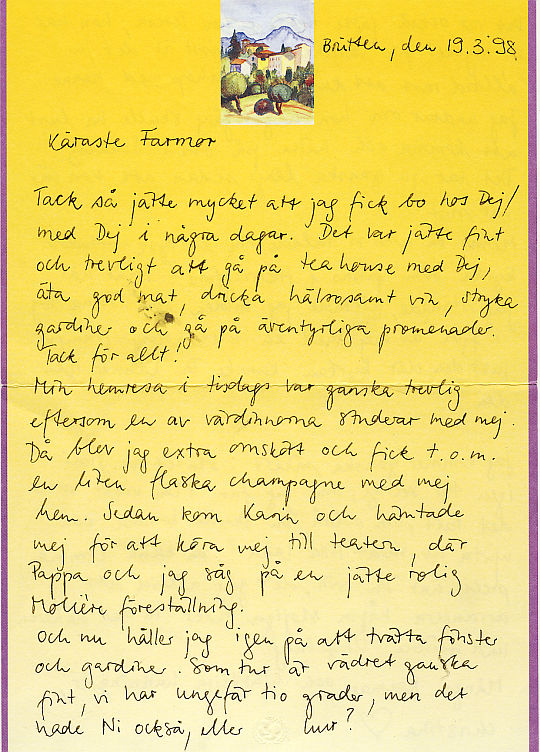 Brütten, den 19.3.98
Käraste Farmor
Tack så jätte mycket att jag fick bo hos Dej/
med Dej i några dagar. Det var jätte fint
och trevligt att gå på teahouse med Dej,
äta god mat, dricka hälsosamt vin, stryka
gardiner och gå på äventyrliga promenader.
Tack för allt!
Min hemresa i tisdags var ganska trevlig
eftersom en av värdinnorna studerar med mej.
Då blev jag extra omskött och fick t.o.m.
en liten flaska champagne med mej
hem. Sedan kom Karin och hämtade
mej för att köra mej till teatern, där
Pappa och jag såg på en jätte rolig
Molière föreställning.
Och nu håller jag igen på att tvätta fönster
och gardiner. Som tur är vädret ganska
fint, vi har ungefär tio grader, men det
hade Ni också, eller hur?